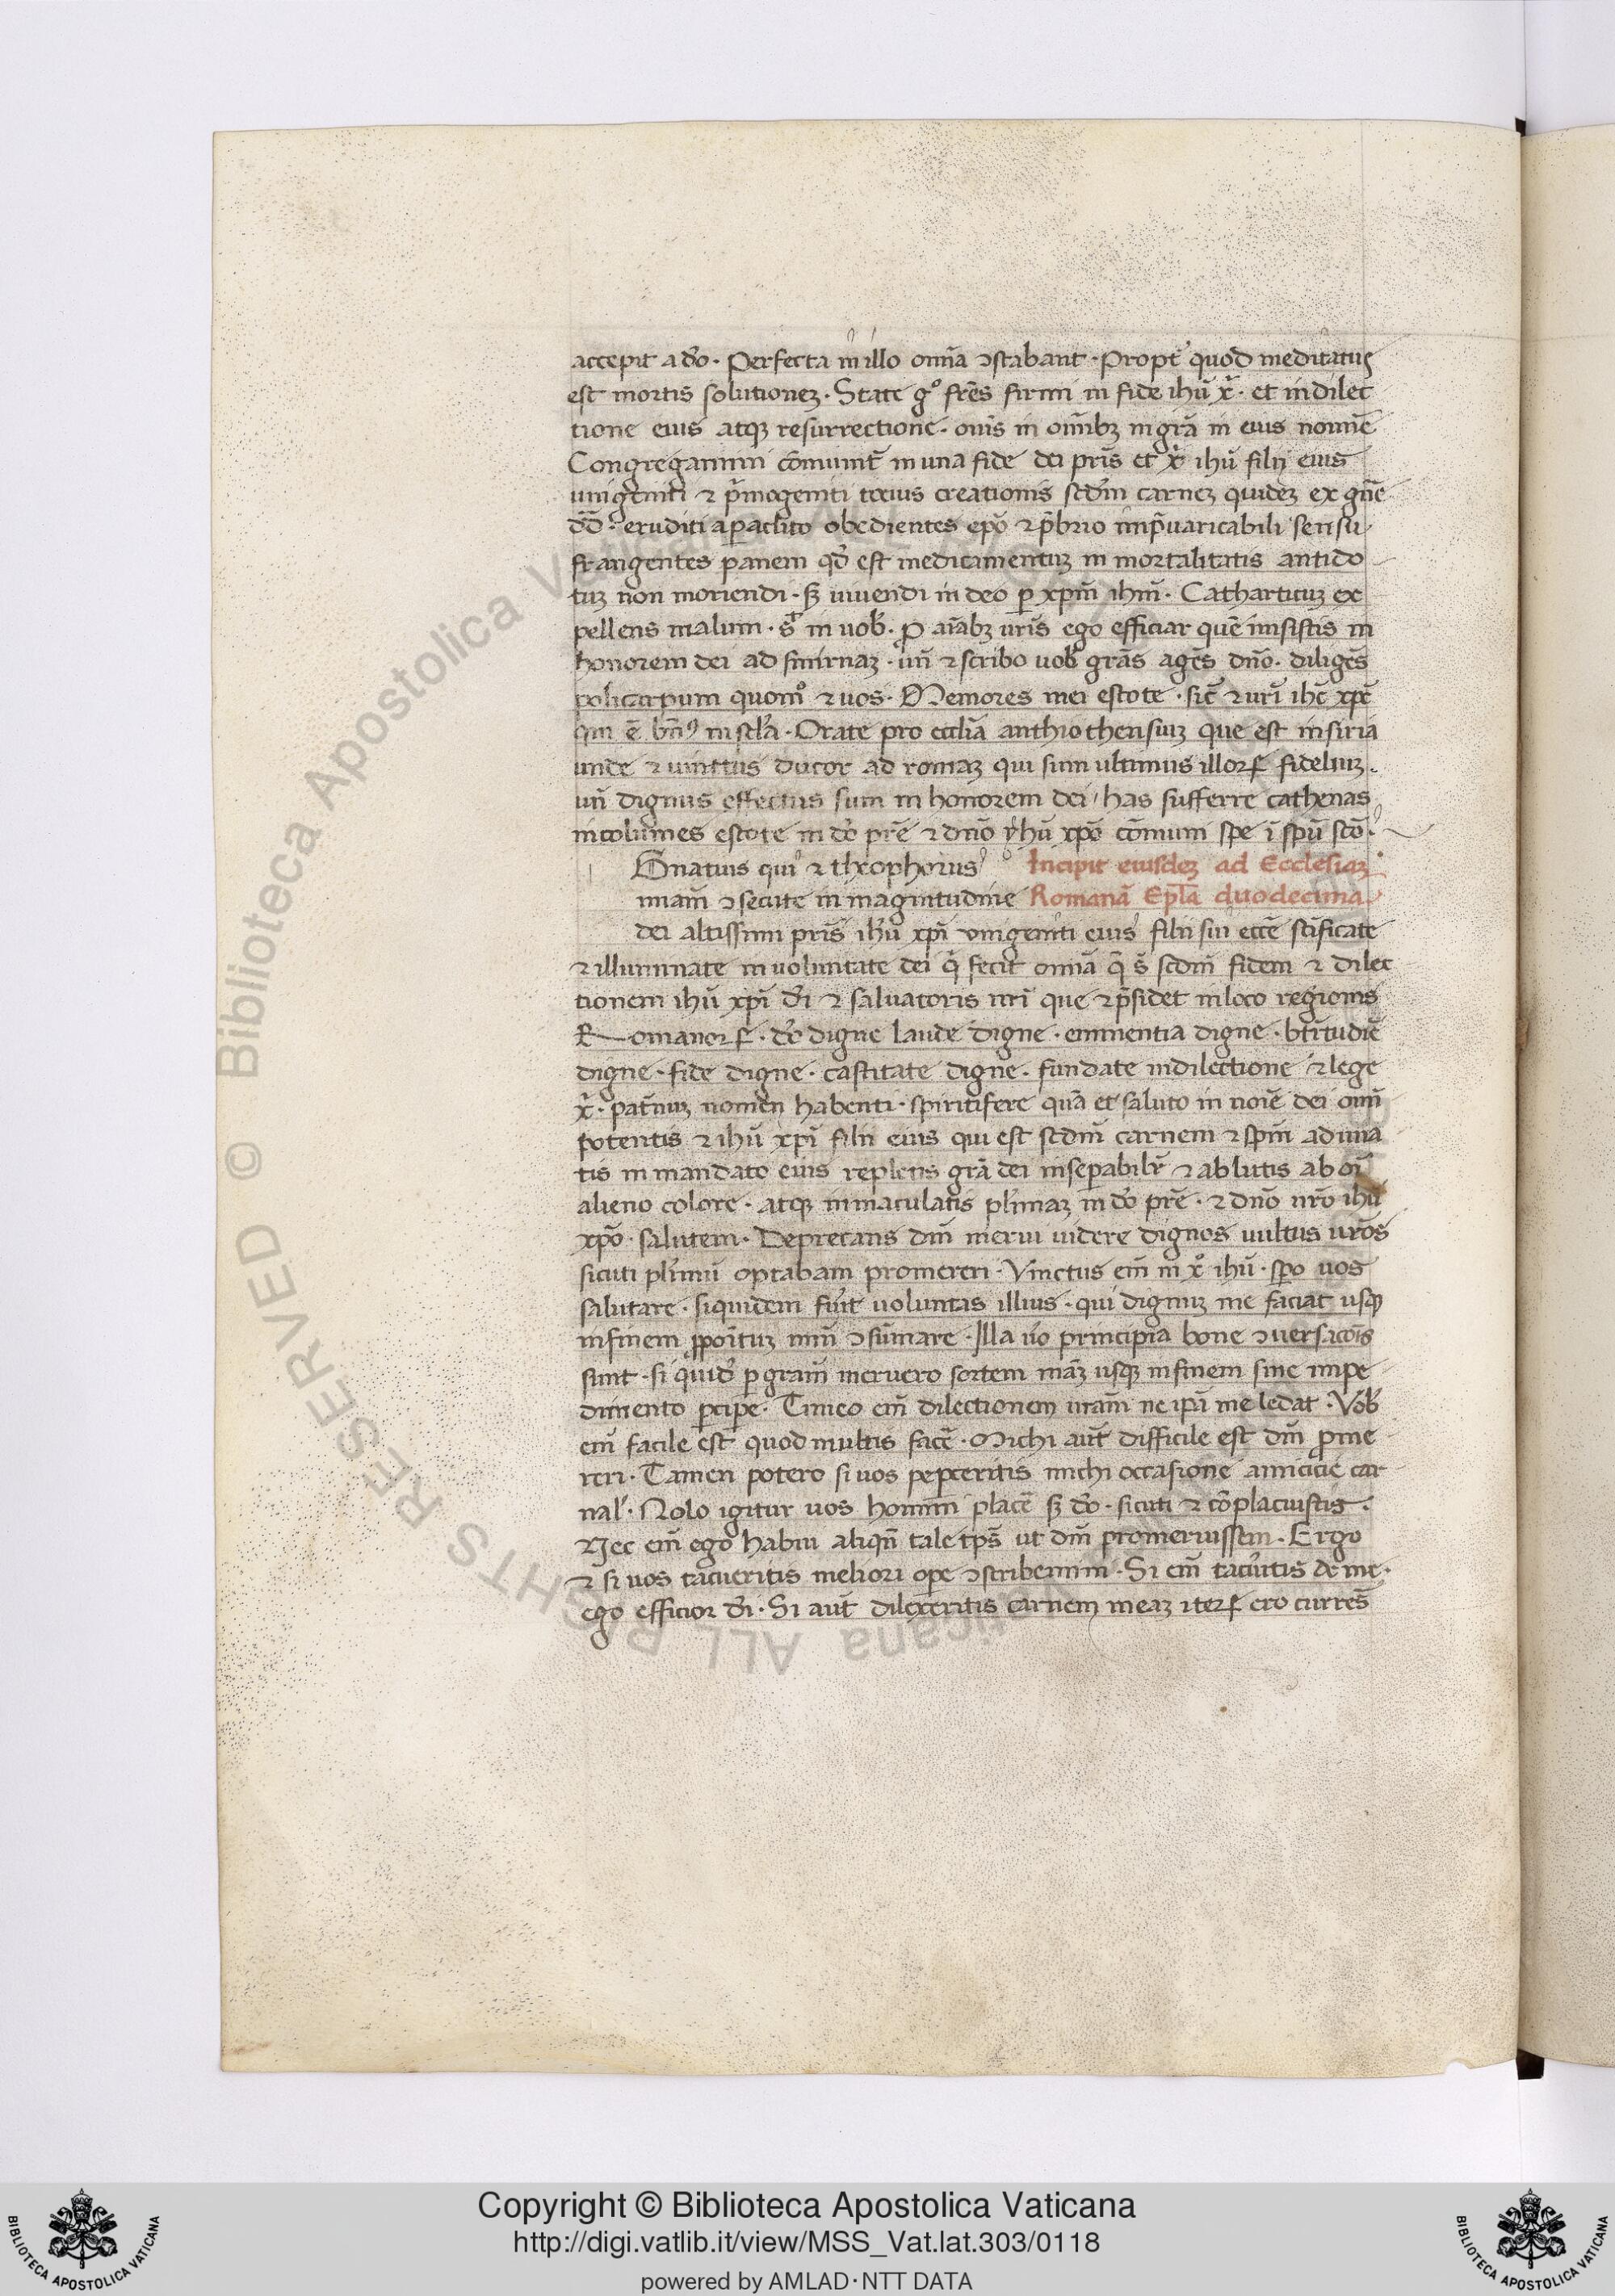 accepit a do̅. Perfecta in illo om̅ia ꝯstabant. Propt̉ quod meditatus
est mortis solutioneꝫ. State gͦ fr̅es firmi in fide ihu̅ xⁱ. et in dilec
tione eius atqꝫ resurrectione. om̅s in om̅ibꝫ in gr̅a in eius nomi̅e
Congregamini co̅muniṫ in una fide dei pr̅is et xⁱ ihu̅ filii eius
unigeniti ⁊ pⁱmogeniti totius creationis scd̅m carneꝫ quideꝫ ex gn̅e
dd̅. eruditi a paraclito obedientes ep̅o ⁊ p̅brio inp̅uaricabili sensu.
frangentes panem qd̅ est medicamentuꝫ in mortalitatis antido
tuꝫ non moriendi. sꝫ uiuendi in deo ꝑ xp̅m ihm̅. Catharticuꝫ ex
pellens malum. s̅t in uob̉. ꝓ ai̅abꝫ ur̅is ego efficiar que̅ misistis in
honorem dei ad smirnaꝫ. un̅ ⁊ scribo uob̉ gr̅as age̅s dn̅o. dilige̅s
policarpum quomͦ ⁊ uos. Memores mei estote. sic̅ ⁊ ur̅i ihc̅ xpc̅
qui e̅ bn̅ꝰ in scl̅a. Orate pro eccl̅ia anthiothensiuꝫ que est in siria
unde ⁊ uinctus ducor ad romaꝫ qui sum ultimus illoꝝ fideliuꝫ.
un̅ dignus effectus sum in honorem dei/ has sufferre cathenas
incolumes estote in do̅ pr̅e ⁊ dn̅o yhu̅ xpo̅ co̅muni spe i̅ spu̅ sco̅.
Gnatius qui ⁊ theophorus Incipit eiusdeꝫ ad Ecclesiaꝫ
miam̅ ꝯsecute in magnitudine Romana̅ Ep̅la duodecima
dei altissimi pr̅is ihu̅ xpi̅ vnigeniti eius filii sui ecce̅ sc̅ificate
⁊ illuminate in uoluntate dei q̅ fecit om̅ia q̅ s̅ scdm̅ fidem ⁊ dilec
tionem ihu̅ xpi̅ di̅ ⁊ saluatoris nr̅i que ⁊ p̅sidet in loco regionis
Romanoꝝ. do̅ digne laude digne. eminentia digne. bt̅itudie̅
digne. fide digne. castitate digne. fundate in dilectione ⁊ lege
xⁱ. pat̅nuꝫ nomen habenti. spiritifere qua̅ et saluto in noi̅e dei om̅i
potentis ⁊ ihu̅ xpi̅ filii eius qui est scdm̅ carnem ⁊ spm̅ aduna
tis in mandato eius repletis gr̅a dei inseparabilr̅ ⁊ ablutis ab oi̅
alieno colore. atqꝫ inmaculatis pl̅imaꝫ in do̅ pr̅e. ⁊ dn̅o nr̅o ihu̅
xpo̅. salutem. Deprecans dm̅ merui uidere dignos uultus ur̅os
sicuti pl̅imu̅ optabam promereri. Vinctus em̅ in xͦ ihu̅. spo̅ uos
salutare. siquidem fu̅it uoluntas illius. qui dignuꝫ me faciat usqꝫ
in finem ꝓpoi̅tuꝫ mm̅ ꝯsu̅mare. Illa uo̅ principia bone ꝯuersaco̅is
sunt. siquid̅ ꝑ gram̅ meruero sortem mea̅ꝫ usqꝫ in finem sine impe
dimento ꝑciꝑe. Timeo em̅ dilectionem uram̅ ne ip̅a me ledat. Vob̉
em̅ facile est quod multis face̅. Michi aut̅ difficile est dm̅ ꝓme
reri. Tamen potero si uos peꝑceritis michi occasione amicicie car
nal̉. Nolo igitur uos homini place̅ sꝫ do̅. sicuti ⁊ co̅placuistis.
Nec em̅ ego habui aliqn̅ tale tp̅s ut dm̅ promeruissem. Ergo
⁊ si uos tacueritis meliori oꝑe ꝯscribemini. Si em̅ tacu̅itis de me.
ego efficior di̅. Si aut̅ dilexeritis carnem meaꝫ iteꝝ ero curre̅s
Copyright © Biblioteca Apostolica Vaticana
http://digi.vatlib.it/view/MSS_Vat.lat.303/0118
powered by AMLAD·NTT DATA